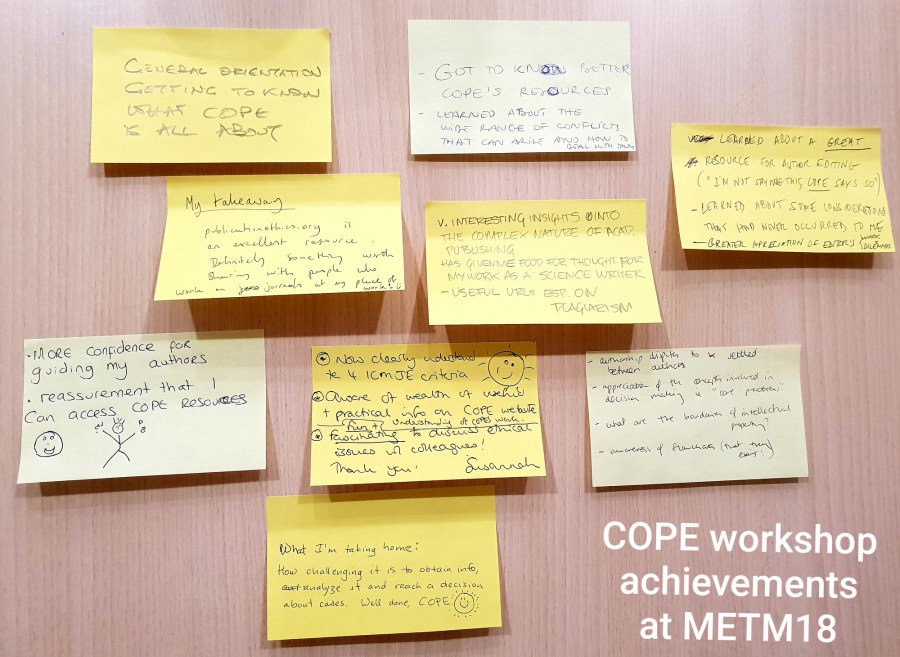 GENERAL ORIENTATION
GETTING TO KNOW
WHAT COPE
IS ALL ABOUT
- GOT TO KNOW BETTER
COPE'S RESOURCES
- LEARNED ABOUT THE
WIDE RANGE OF CONFLICTS
THAT CAN ARISE AND HOW TO
DEAL WITH THEM
LEARNED ABOUT A GREAT
RESOURCE FOR AUTHOR EDITING
("I'M NOT SAYING THIS, COPE SAYS SO")
- LEARNED ABOUT SOME CONSIDERATION
THAT HAD NEVER OCCURRED TO ME
- GREATER APRECIATION OF EDITOR'S
DILEMMAS
My takeaway
publicationethics.org is
an excellent resource.
Definitely something worth
sharing with people who
work on journals at my place of
work
V. INTERESTING INSIGHTS INTO
THE COMPLEX NATURE OF ACAD.
PUBLISHING
HAS GIVEN ME FOOD FOR THOUGHT FOR
MY WORK AS A SCIENCE WRITER
- USEFUL URLS ESP. ON
PLAGIARISM
• MORE confidence for
guiding my authors
• reassurement that I
can access COPE RESOURCES
Now clearly understand
te 4 ICMJE criteria
Aware of wealth of useful
+ practical info on COPE website
Fun + understanding of COPE's work.
Fascinating to discuss ethical
issues w/ colleagues!
Thank you!
Susannah
- authorship disputes to be settled
between authors
- appreciation of the concepts involved in
decision making in "core practices"
- what are the boundaries of intellectual
property?
- awareness of (that they
exist!)
What I'm taking home:
How challenging it is to obtain info,
analyze it and reach a decision
about cases. Well done, COPE
COPE workshop
achievements
at METM18